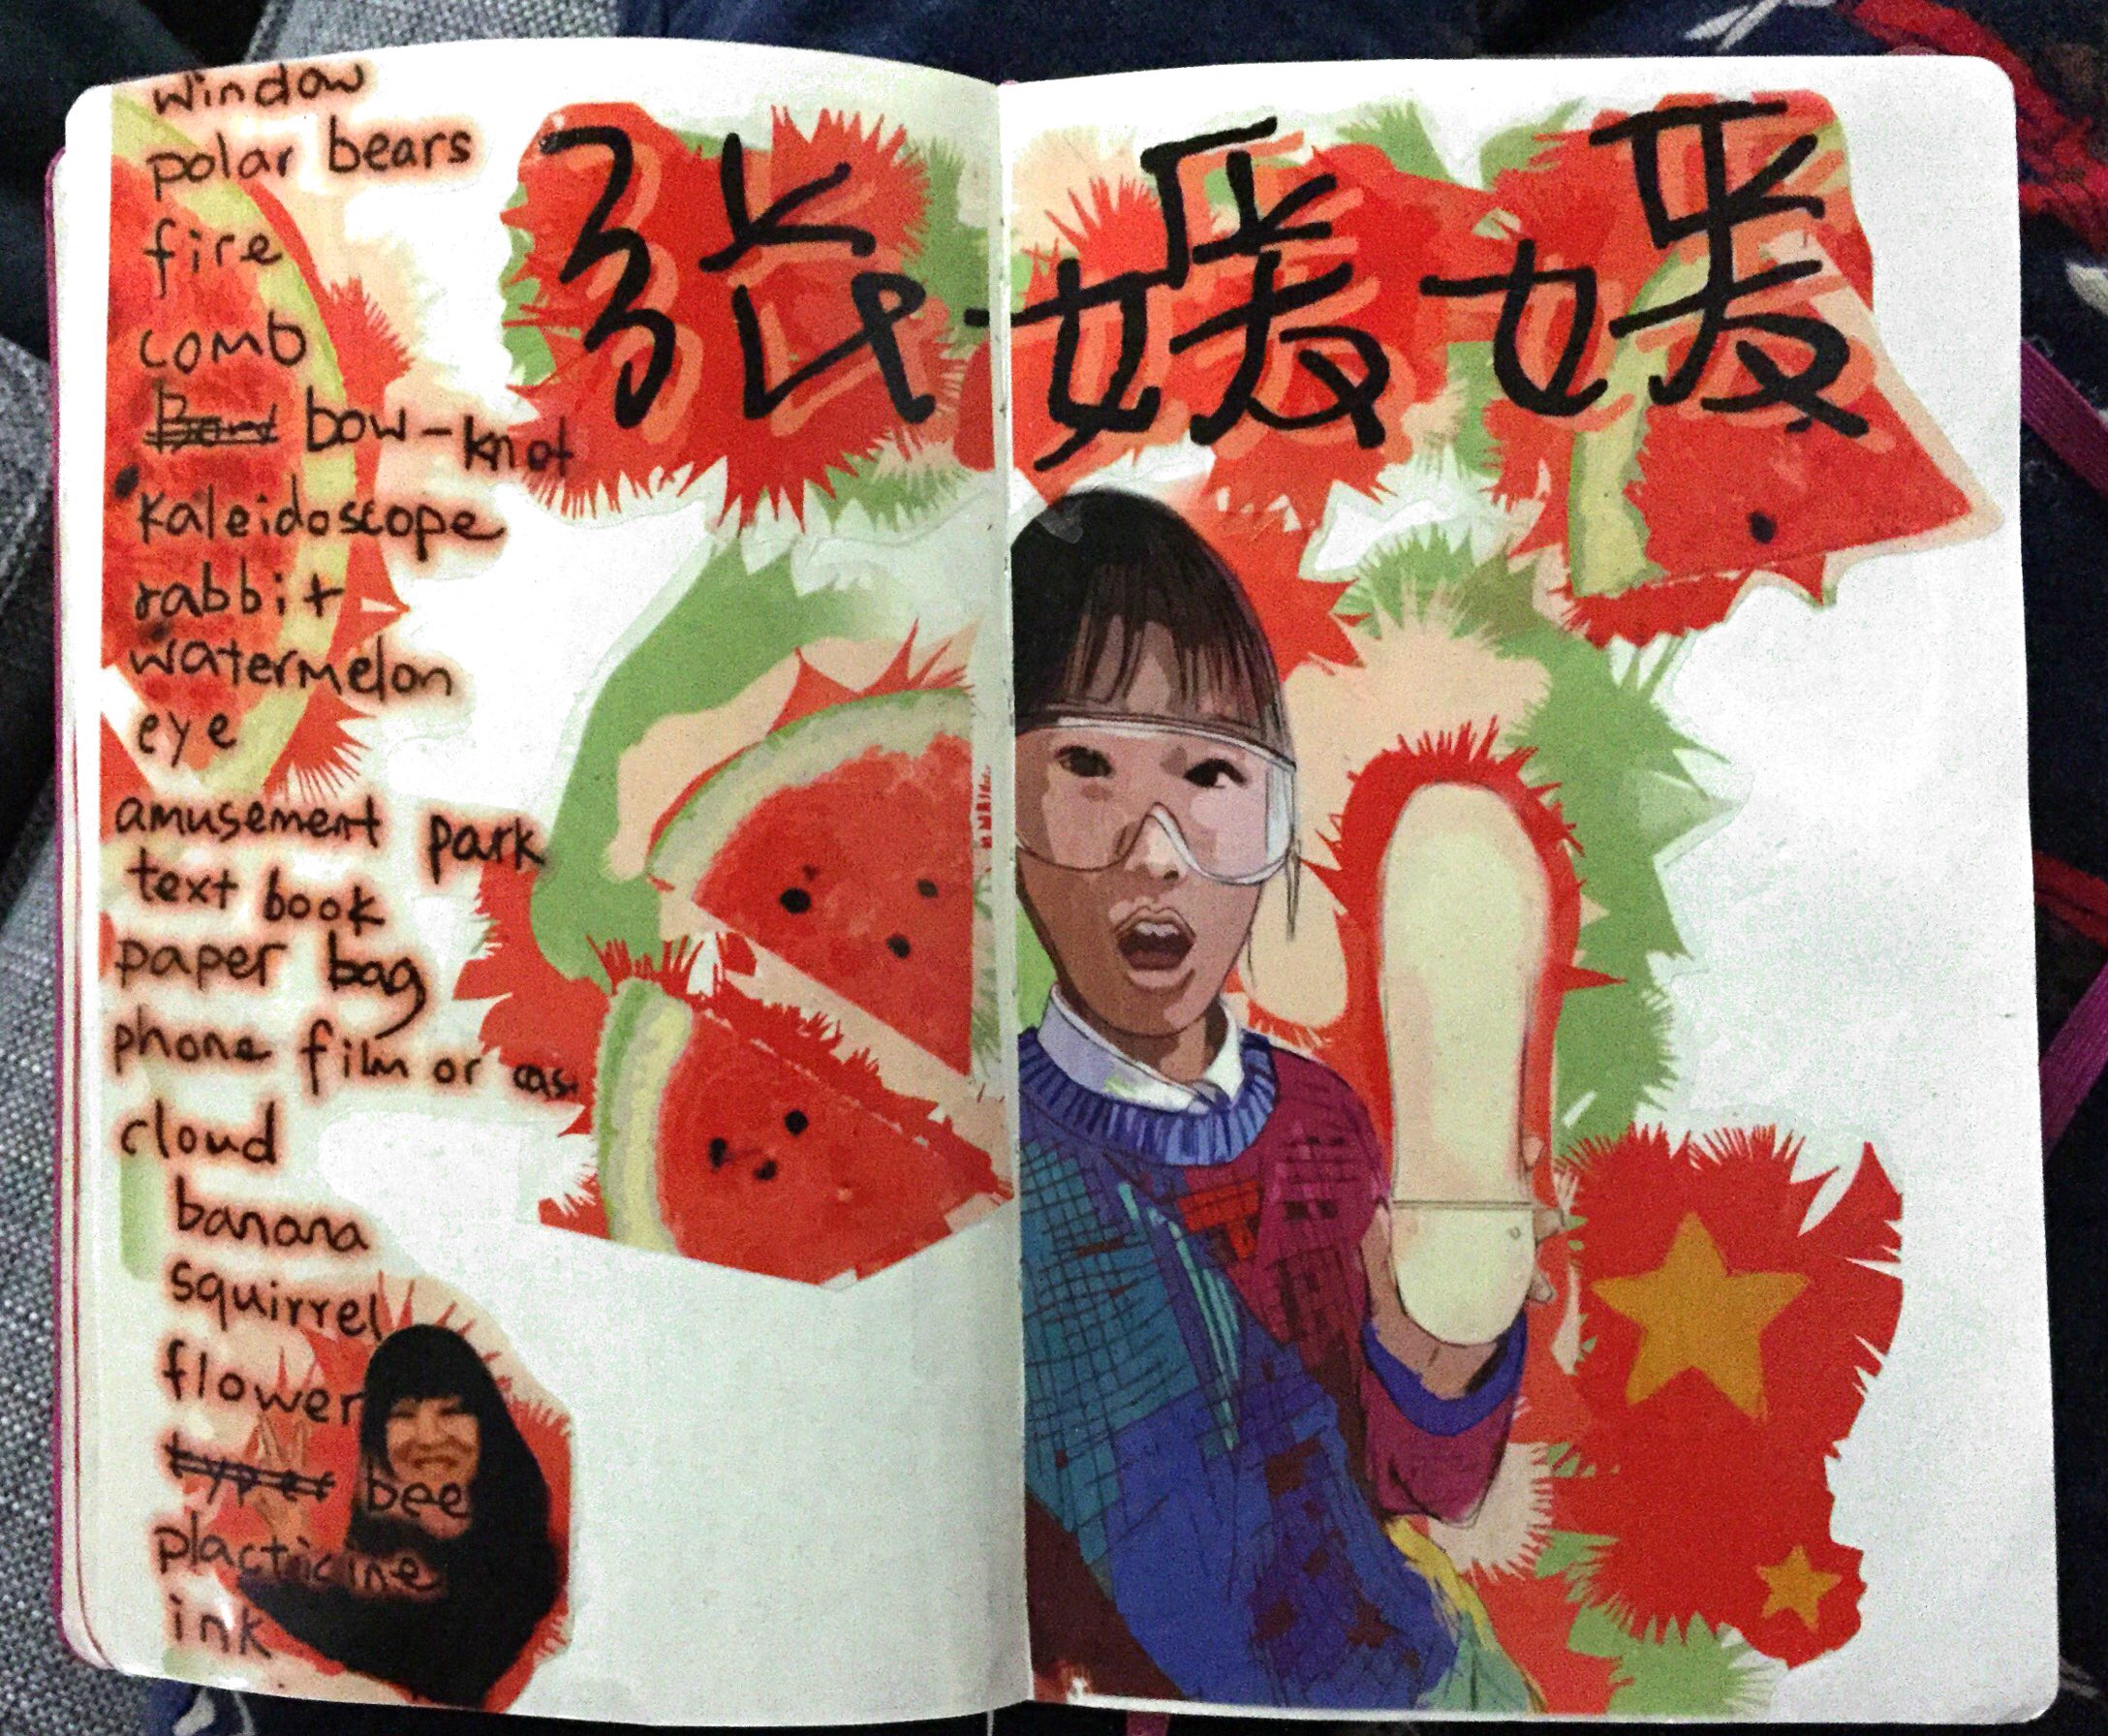 window
polar bears
fire
comb
bow-knot
kaleidoscope
rabbit
watermelon
eye
amusement park
text book
paper bag
phone film or cas
cloud
banana
squirrel
flower
bee
placticine
ink
张媛媛